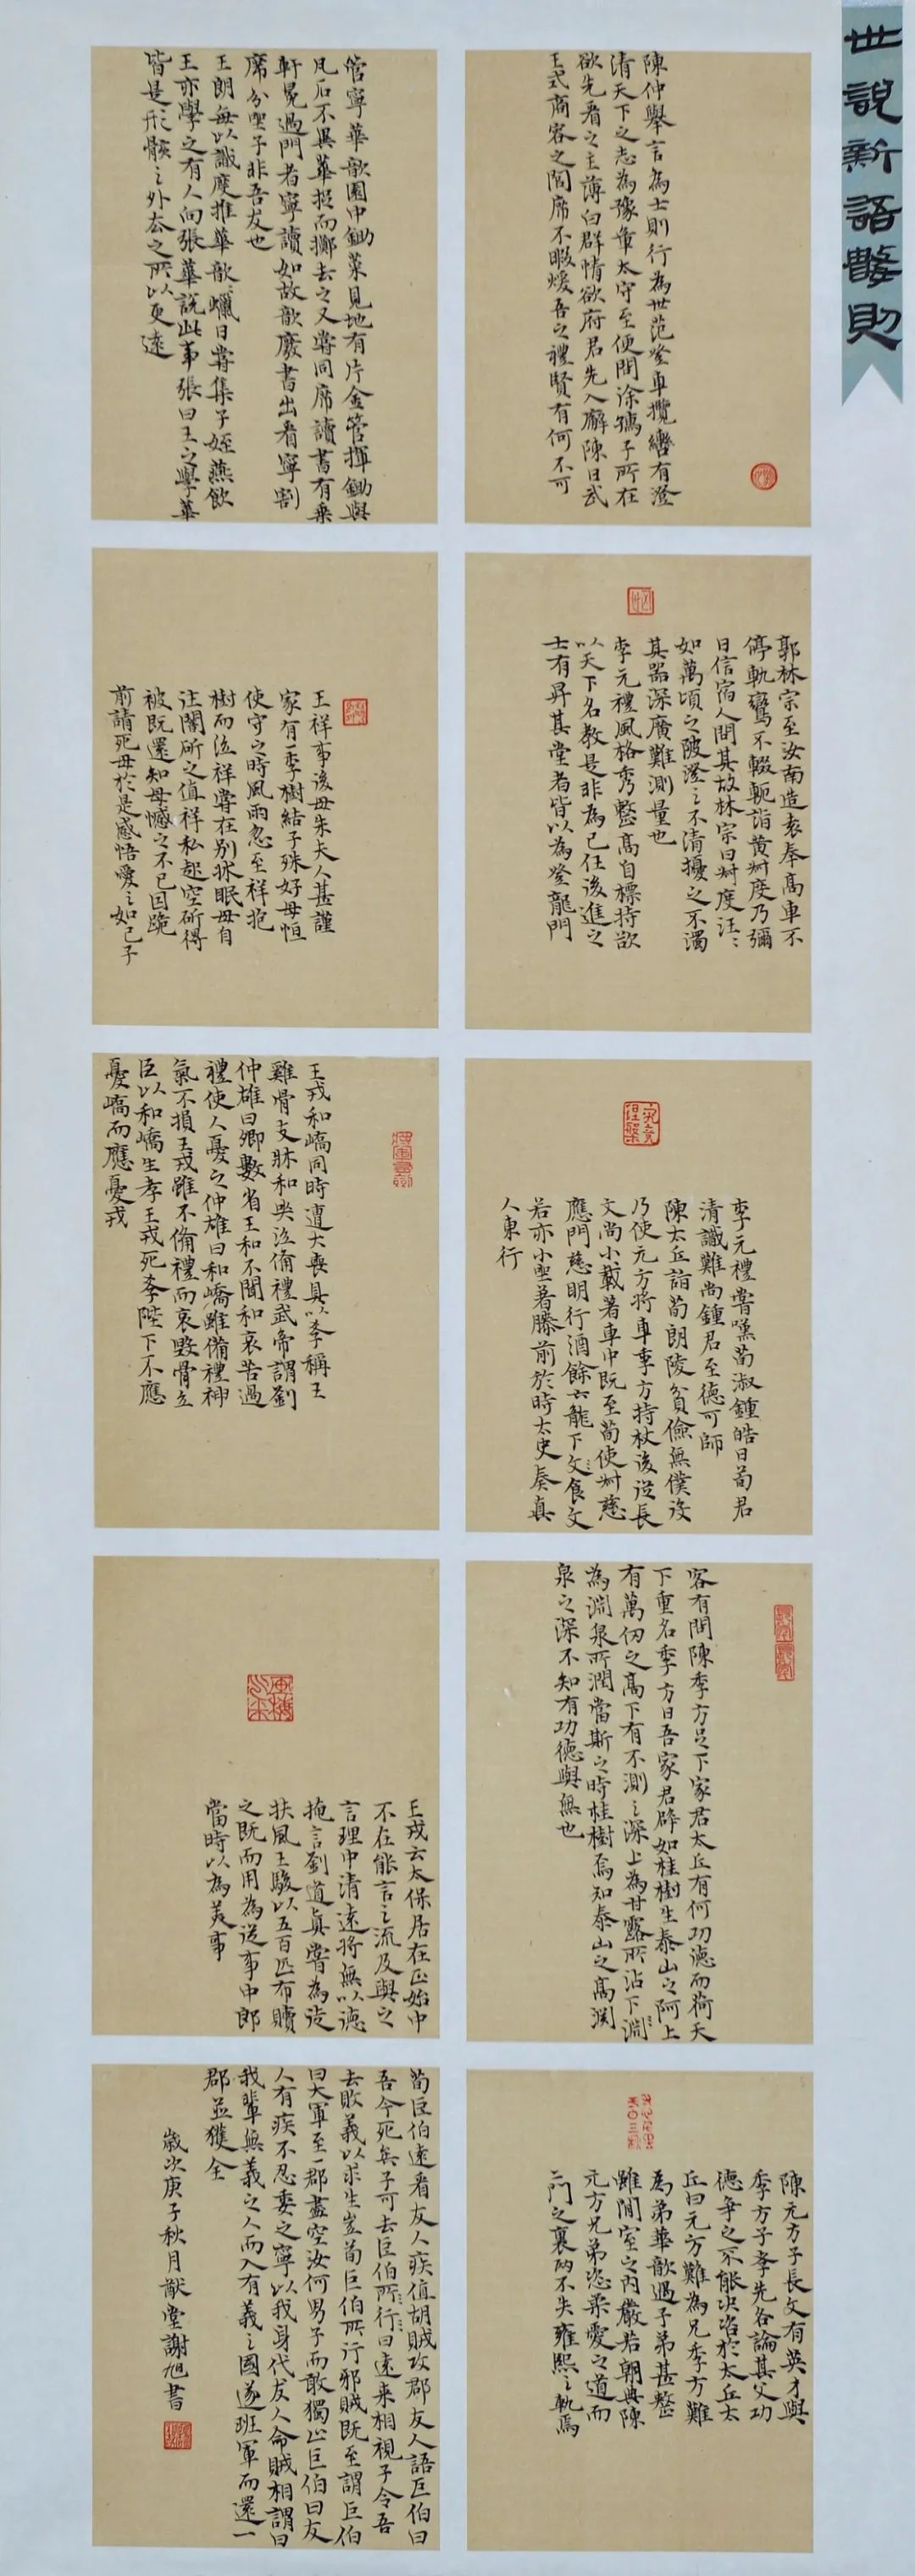 世說新語數則
陳仲舉言為士則行為世范登車攬轡有澄
清天下之志為豫章太守至便問徐孺子所在
欲先看之主薄白群情欲府君先入廨陳曰武
王式商容之閭席不暇煖吾之禮賢有何不可
郭林宗至汝南造袁奉高車不
停軌鸞不輟軛詣黃叔度乃彌
日信宿人問其故林宗曰叔度汪〻
如萬頃之陂澄之不清擾之不濁
其器深廣難測量也
李元禮風格秀整高自標持欲
以天下名教是非為己任後進之
士有昇其堂者皆以為登龍門
究竟涅槃
李元禮嘗嘆荀淑鍾皓曰荀君
清識難尚鍾君至德可師
陳太丘詣荀朗陵貧儉無僕役
乃使元方將車季方持杖後從長
文尚小載著車中既至荀使叔慈
應門慈明行酒餘六龍下食文
若亦小坐著膝前於時太史奏真
人東行
客有問陳季方足下家君太丘有何功德而荷天
下重名季方曰吾家君辟如桂樹生泰山之阿上
有萬仞之高下有不測之深上為甘露所沾下淵
為淵泉所潤當斯之時桂樹焉知泰山之高淵
泉之深不知有功德與無也
陳元方子長文有英才與
季方子孝先各論其父功
德爭之不能決咨於太丘太
丘曰元方難為兄季方難
為弟華歆遇子弟甚整
雖閒室之內嚴若朝典陳
元方兄弟恣柔愛之道而
二門之裏兩不失雍熙之軌焉
管寧華歆園中鋤菜見地有片金管揮鋤與
瓦石不異華捉而擲去之又嘗同席讀書有乘
軒冕過門者寧讀如故歆廢書出看寧割
席分坐子非吾友也
王朗每以識度推華歆蠟日嘗集子姪燕飲
王亦學之有人向張華說此事張曰王之學華
皆是形骸之外去之所以更遠
王祥事後母朱夫人甚謹
家有一李樹結子殊好母恒
使守之時風雨忽至祥抱
樹而泣祥嘗在別牀眠母自
往闇斫之值祥私起空斫得
被既還知母憾之不已因跪
前請死母於是感悟愛之如己子
王戎和嶠同時遭大喪具以孝稱王
雞骨支牀和哭泣備禮武帝謂劉
仲雄曰卿數省王和不聞和哀苦過
禮使人憂之仲雄曰和嶠雖備禮神
氣不損王戎雖不備禮而哀毀骨立
臣以和嶠生孝王戎死孝陛下不應
憂嶠而應憂戎
王戎云太保居在正始中
不在能言之流及與之
言理中清遠將無以德
掩言劉道真嘗為徒
扶風王駿以五百匹布贖
之既而用為從事中郎
當時以為美事
荀巨伯遠看友人疾值胡賊攻郡友人語巨伯曰
吾今死矣子可去巨伯所行曰遠來相視子令吾
去敗義以求生豈荀巨伯所行邪賊既至謂巨伯
曰大軍至一郡盡空汝何男子而敢獨止巨伯曰友
人有疾不忍委之寧以我身代友人命賊相謂曰
我輩無義之人而入有義之國遂班軍而還一
郡並獲全
歲次庚子秋月猷堂謝旭書